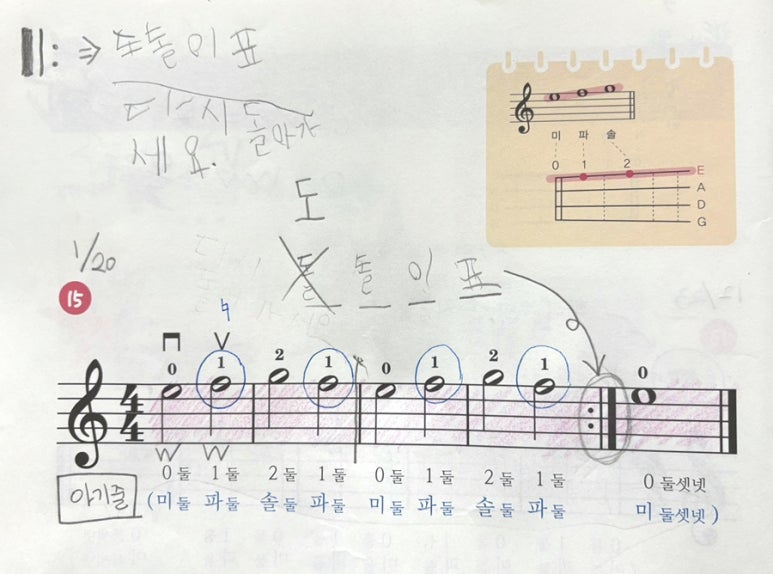 ⇒ 도돌이표
다시 돌아가
세요.
미 파 솔
0 1 2
E
A
D
G
도
1/20
돌 이 표
15
0 1 2 1 0 1 2 1 0
4
4
0 둘 1 둘 2 둘 1 둘 0 둘 1 둘 2 둘 1 둘 0 둘셋넷
아기줄 (미 둘 파 둘 솔 둘 파 둘 미 둘 파 둘 솔 둘 파 둘 미 둘셋넷)